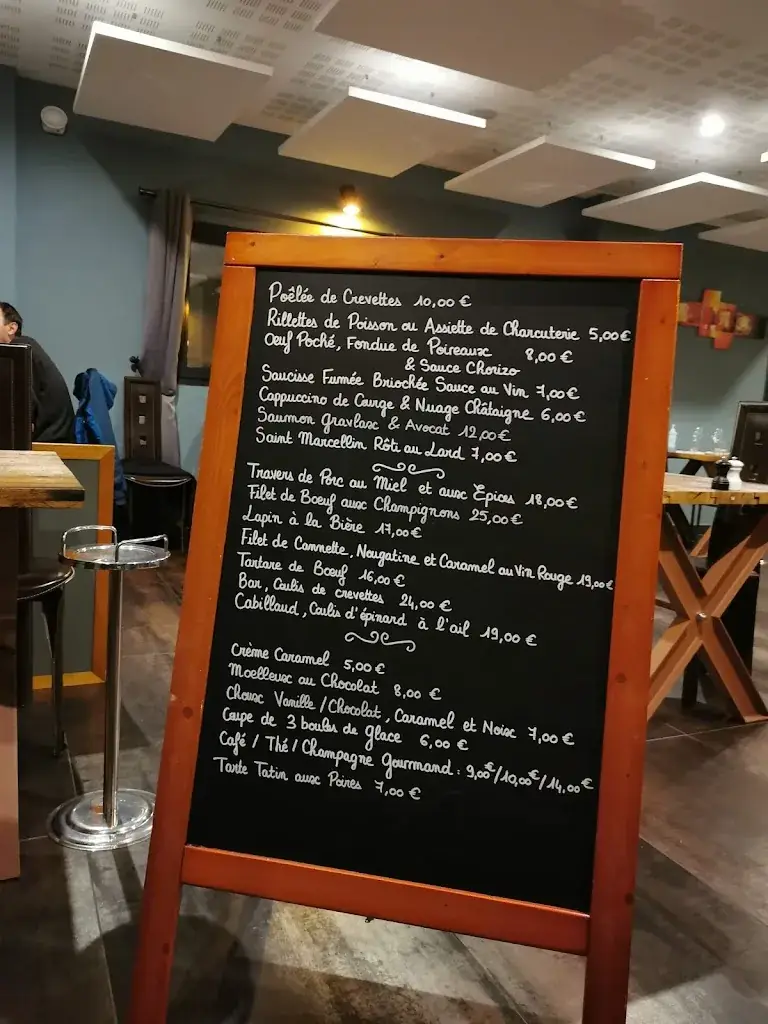 Poêlée de Crevettes 10,00 €
Rillettes de Poisson ou Assiette de Charcuterie 5,00 €
Oeuf Poché, Fondue de Poireaux 8,00 €
& Sauce Chorizo
Saucisse Fumée Briochée Sauce au Vin 7,00 €
Cappuccino de Courge & Nuage Châtaigne 6,00 €
Saumon Gravlax & Avocat 12,00 €
Saint Marcellin Rôti au Lard 7,00 €
Travers de Porc au Miel et aux Épices 18,00 €
Filet de Boeuf aux Champignons 25,00 €
Lapin à la Bière 17,00 €
Filet de Cannette, Nougatine et Caramel au Vin Rouge 19,00 €
Tartare de Boeuf 16,00 €
Bar, Coulis de crevettes 24,00 €
Cabillaud, Coulis d'épinard à l'ail 19,00 €
Crème Caramel 5,00 €
Moelleux au Chocolat 8,00 €
Choux Vanille / Chocolat, Caramel et Noix 7,00 €
Coupe de 3 boules de glace 6,00 €
Café / Thé / Champagne Gourmand : 9,00 € / 10,00 € / 14,00 €
Tarte Tatin aux Poires 7,00 €